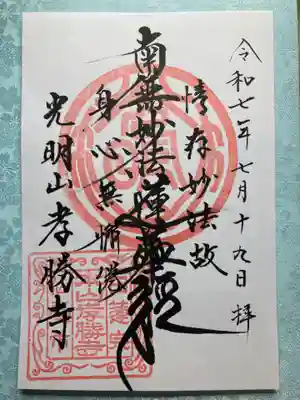 令和七年七月十九日 拝
情存妙法故
南無妙法蓮華経
身心無懈倦
光明山 孝勝寺